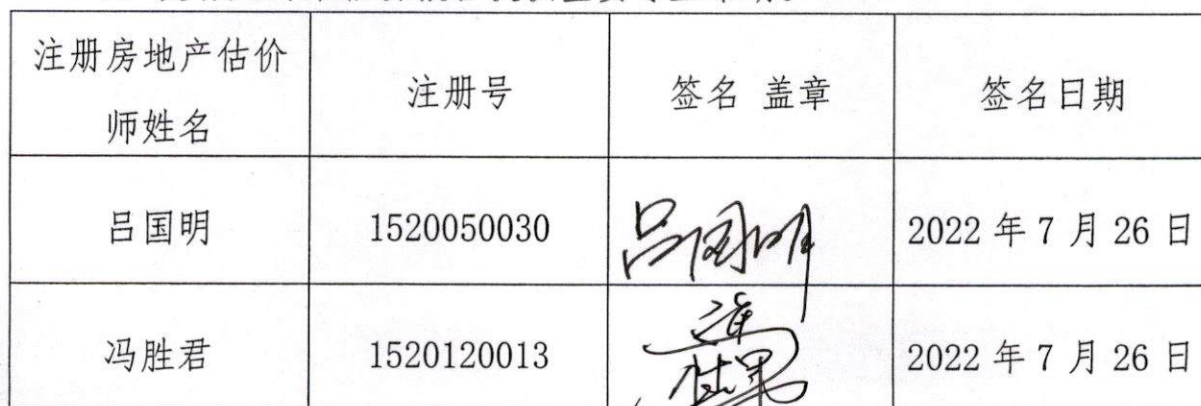 注册房地产估价
师姓名
注册号
签名 盖章
签名日期
吕国明
1520050030
吕国明
2022 年 7 月 26 日
冯胜君
1520120013
2022 年 7 月 26 日